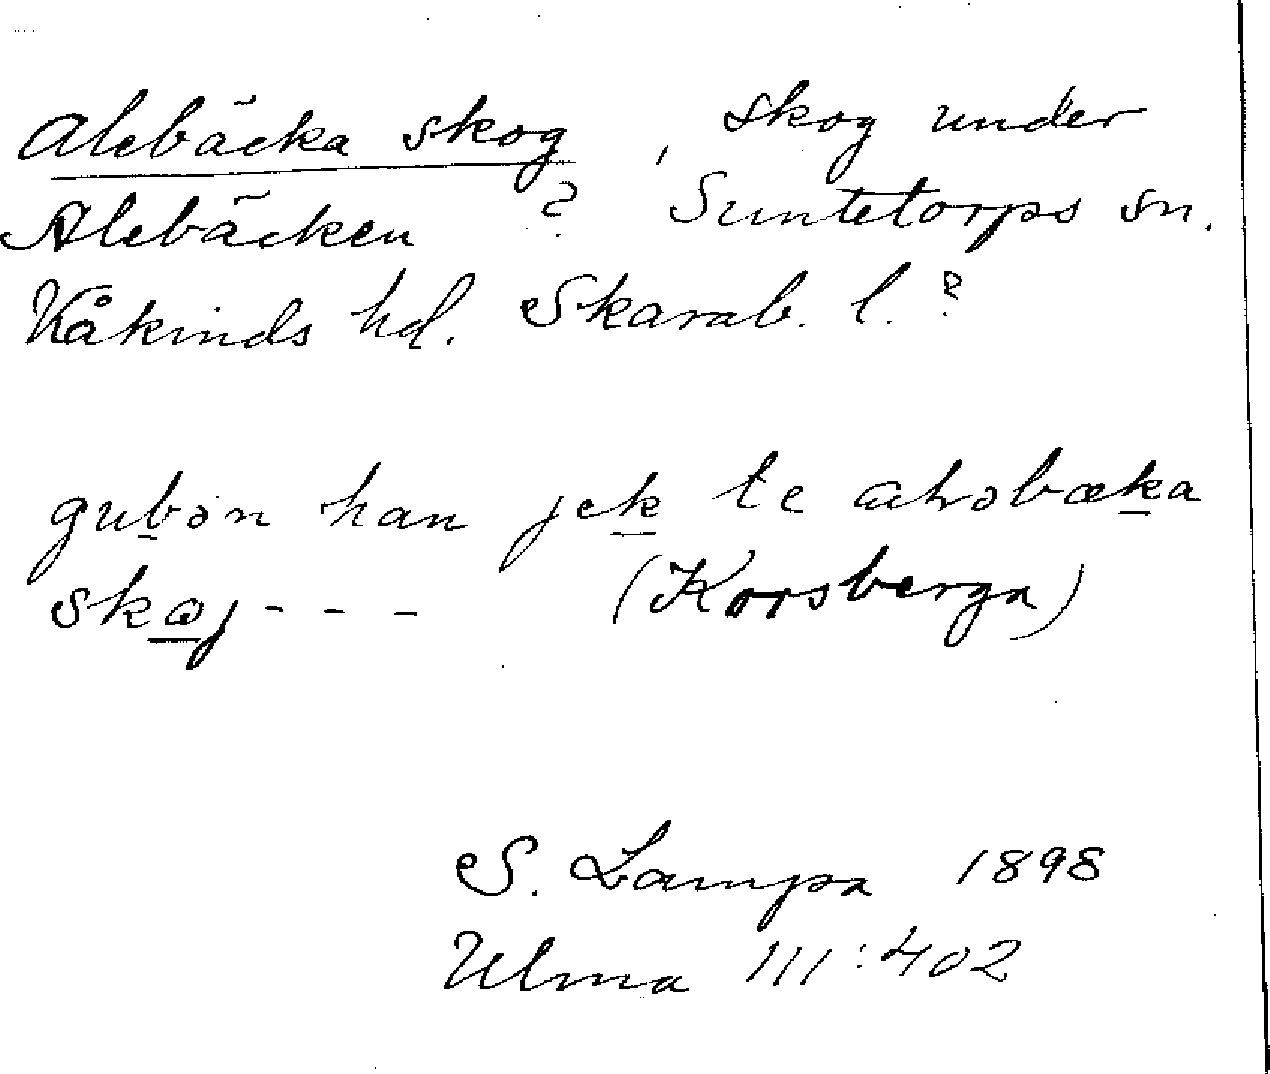 Alebäcka skog, skog under
Alebäcken ? Suntetorps sn.
Kåkinds hd. Skarab. l.?
gubən han jek te aləbæka
skoj - - - (Korsberga)
S. Lampa 1898
Ulma 111:402